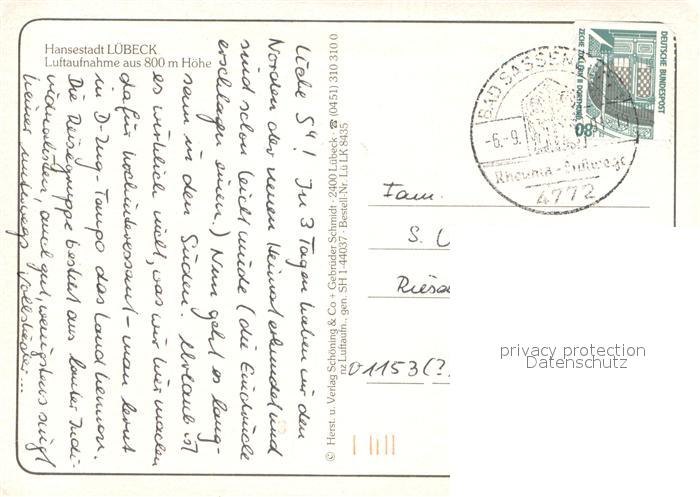 Hansestadt LÜBECK
Luftaufnahme aus 800 m Höhe
Liebe S+! In 3 Tagen haben wir den
Norden der neuen Heimat erkundet und
sind schon leicht müde (die Eindrücke
erschlagen einen.) Nun geht es lang-
sam in den Süden. Urlaub ist
es wirklich nicht, was wir hier machen
dafür hochinteressant - man lernt
in D-Zug-Tempo das Land kennen.
Die Reisegruppe besteht aus lauter Indi-
vidualisten, auch gut, wenigstens singt
keiner unterwegs Volkslieder...
© Herst. u. Verlag Schöning & Co + Gebrüder Schmidt · 2400 Lübeck ☎ (0451) 310 310 0
nz Luftaufn., gen. SH 1-44037 · Bestell-Nr. Lü LK 8435
DEUTSCHE BUNDESPOST
ZECHE ZOLLERN II DORTMUND
80
BAD SASSEN
-6.-9.
Rheuma-
4772
Fam.
S.
01153(?
privacy protection
Datenschutz